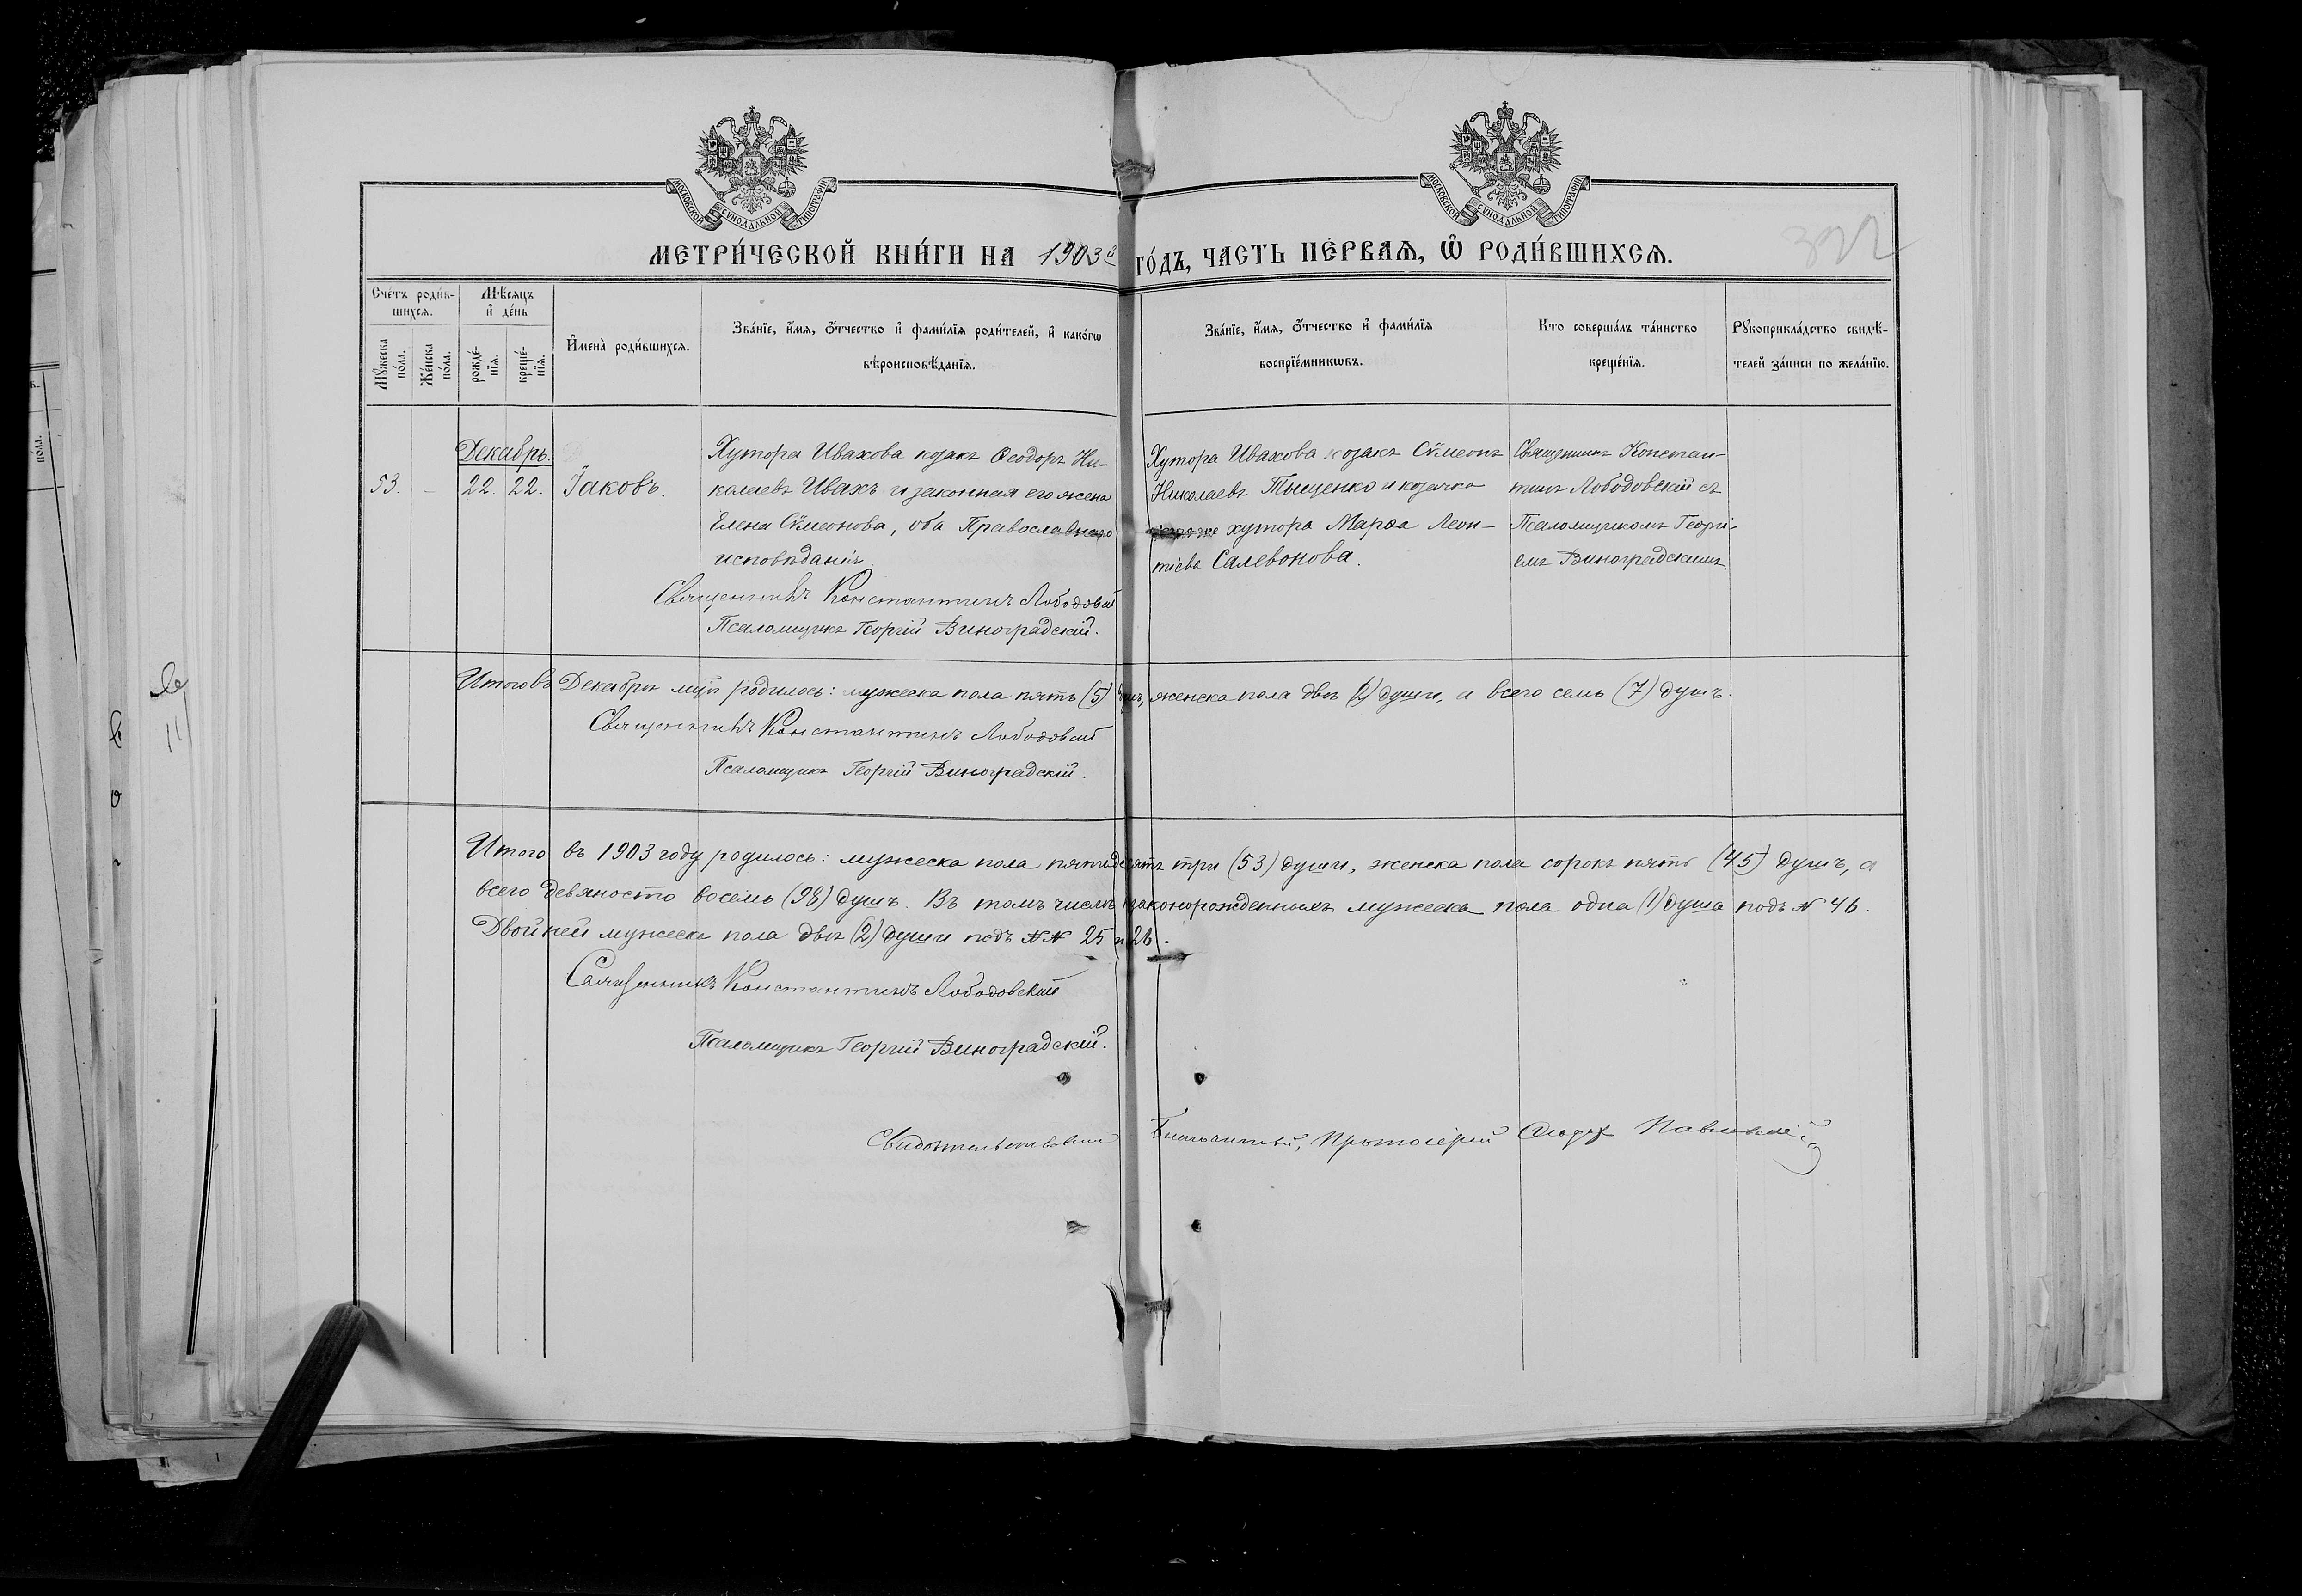 МОСКОВСКОЙ СУНОДАЛЬНОЙ ТИПОГРАФІИ
МОСКОВСКОЙ СУНОДАЛЬНОЙ ТИПОГРАФІИ
322
МЕТРИ́ЧЕСКОЙ КНИ́ГИ НА 1903й ГО́ДЪ, ЧАСТЬ ПЕ́РВАЯ, Ѿ РОДИ́ВШИХСЯ.
Сче́тъ роди́в-
шихся.
Му́жеска по́ла.
Же́нска по́ла.
Мѣ́сяцъ и де́нь
рожде́-
нїя.
креще́-
нїя.
И҆мена̀ роди́вшихся.
Зва́нїе, и҆́мя, ѻ҆́тчество и҆ фами́лїя роди́телей, и҆ како́гѡ
вѣроисповѣ́данїя.
Зва́нїе, и҆́мя, ѻ҆́тчество и҆ фами́лїя
воспрїе́мникѡвъ.
Кто соверша́лъ та́инство
креще́нїя.
Рꙋкоприкла́дство свидѣ́-
телей за́писи по жела́нїю.
Декабрь.
53. – 22. 22. Іаковъ.
Хутора Ивахова козакъ Ѳеодоръ Ни-
колаевъ Ивахъ и законная его жена
Елена Сѵмеонова, оба Православнаго
исповѣданія.
Священникъ Константинъ Лободовскій
Псаломщикъ Георгій Виноградскій.
Хутора Ивахова козакъ Сѵмеонъ
Николаевъ Тыщенко и козачка
хутора Марѳа Леон-
тіева Салевонова.
Священникъ Констан-
тинъ Лободовскій съ
Псаломщикомъ Георгі-
емъ Виноградскимъ.
Итого въ Декабрѣ мцѣ родилось: мужеска пола пять (5) душъ, женска пола двѣ (2) души, а всего семь (7) душъ.
Священникъ Константинъ Лободовскій
Псаломщикъ Георгій Виноградскій.
Итого въ 1903 году родилось: мужеска пола пятьдесятъ три (53) души, женска пола сорокъ пять (45) душъ, а
всего девяносто восемь (98) душъ. Въ томъ числѣ незаконорожденныхъ мужеска пола одна (1) душа подъ № 46.
Двойней мужеска пола двѣ (2) души подъ №№ 25 и 26.
Священникъ Константинъ Лободовскій
Псаломщикъ Георгій Виноградскій.
Свидѣтельствовалъ Благочинный, Протоіерей